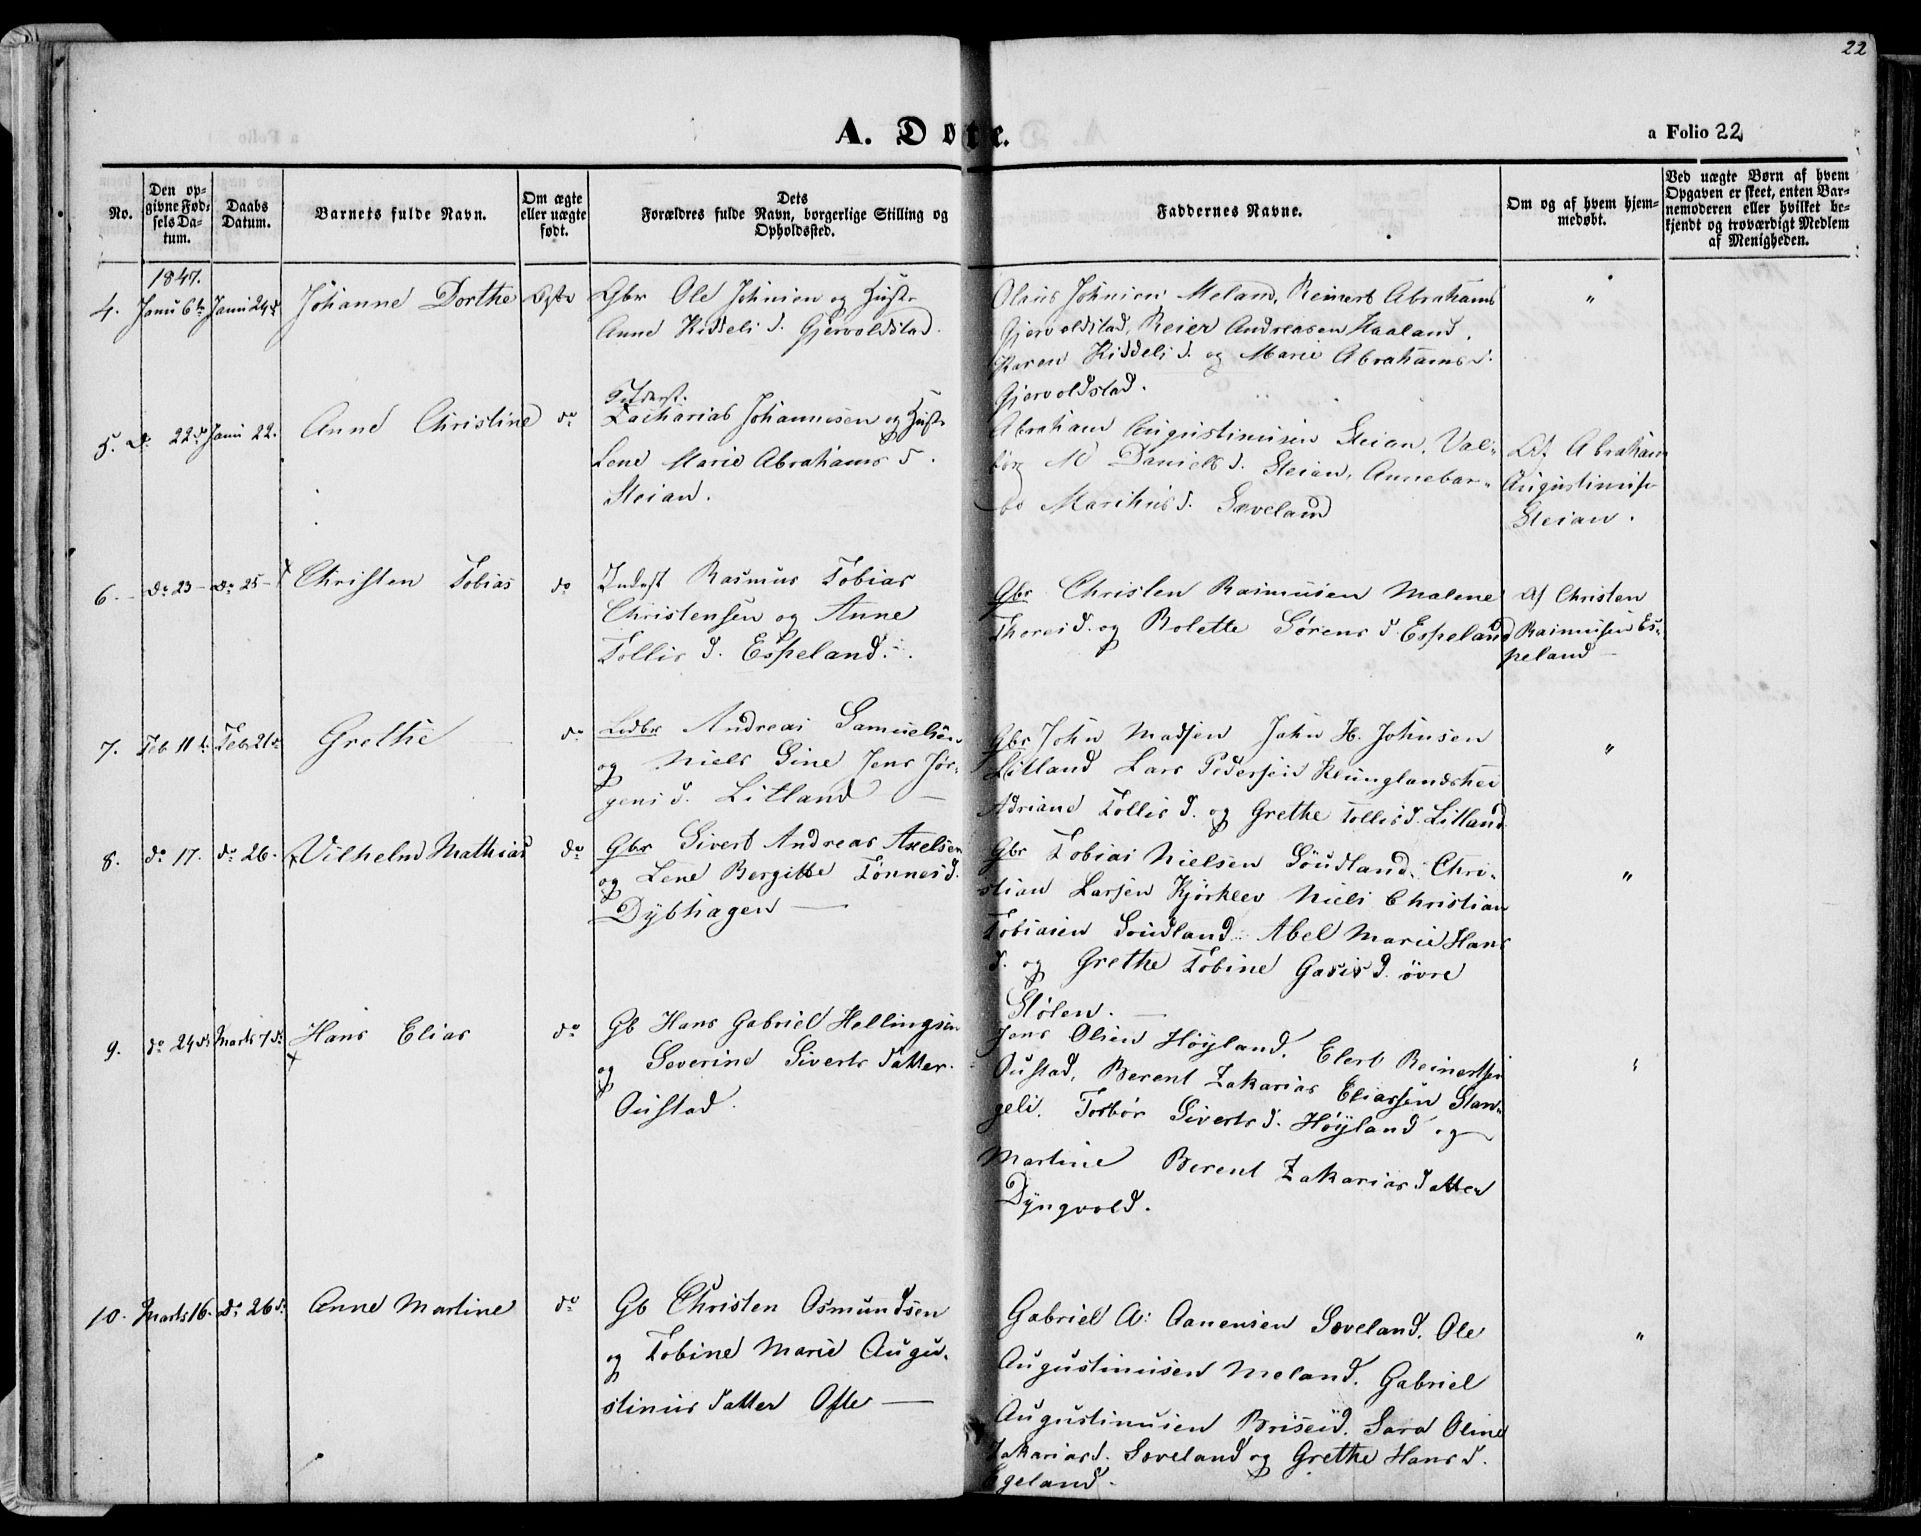 22
A. Døte.
a Folio 22
No.
Den op-
givne Fød-
sels Da-
tum.
Daabs
Datum.
Barnets fulde Navn.
Om ægte
eller uægte
født.
Dets
Forældres fulde Navn, borgerlige Stilling og
Opholdssted.
Faddernes Navne.
Om og af hvem hjem-
medøbt.
Ved uægte Børn af hvem
Opgaven er skeet, enten Bar-
nemoderen eller hvilket be-
kjendt og troværdigt Medlem
af Menigheden.
1847.
4. Janu 6te Janu 24de Johanne Dorthe Ægte
Gbr Ole Johnsen og Hustr
Anne Kiddelsd. Gjervoldstad.
Olaus Johnsen Meland, Reinert Abrahams
Gjervoldstad, Reier Andreasen Haaland,
Karen Kiddelsd. og Marie Abrahamsd.
Gjervoldstad.
"
5. Do 22de Janu 22. Anne Christine do
Zacharias Johannesen og Hustr
Lene Marie Abrahams d.
Steian.
Abraham Augustinusen Steian, Val-
bør M Daniels d. Steian, Annebar-
be Marthis d. Sæveland
Af Abraham
Augustinusen
Steian.
6. do 23 do 25 Christen Tobias do
Inderst Rasmus Tobias
Christensen og Anne
Tollis d. Espeland.
Gbr Christen Rasmusen Malene
Thores d. og Bolette Sørens d Espeland
Af Christen
Rasmusen Es-
peland
7. Feb 11te Feb 21de Grethe do
Ledbr Andreas Samuelsen
og Niels Gine Jens Jør-
gens d. Litland
Gbr John Madsen John H. Johnsen
Litland Lars Pedersen Klunglandshei
Adriane Tollis d. og Grethe Tollis d. Litland
"
8. do 17. do 26. Vilhelm Mathias do
Gbr Sivert Andreas Axelsen
og Lene Bergitte Tønnes d.
Dybhagen
Gbr Tobias Nielsen Soudland. Chri-
stian Larsen Kjørklev Niels Christian
Tobiasen Soudland. Abel Marie Hans
d. og Grethe Tobine Gasis d. övre
Stølen.
"
9. do 24de Marts 7de Hans Elias do
Gb Hans Gabriel Hellingsen
og Severine Siverts datter
Oustad.
Jens Olsen Høyland. Elert Reinertsen
Oustad, Berent Zakarias Eliassen Stan-
geli. Torbør Siverts d. Høyland og
Martine Berent Zakarias datter
Dyngvold.
"
10. Marts 16. do 26de Anne Martine do
Gb Christen Osmundsen
og Tobine Marie Augu-
stinus datter Ofte
Gabriel A: Aanensen Sæveland. Ole
Augustinusen Meland. Gabriel
Augustinusen Briseid. Sara Oline
Zakariasd. Sæveland og Grethe Hans d.
Egeland.
"